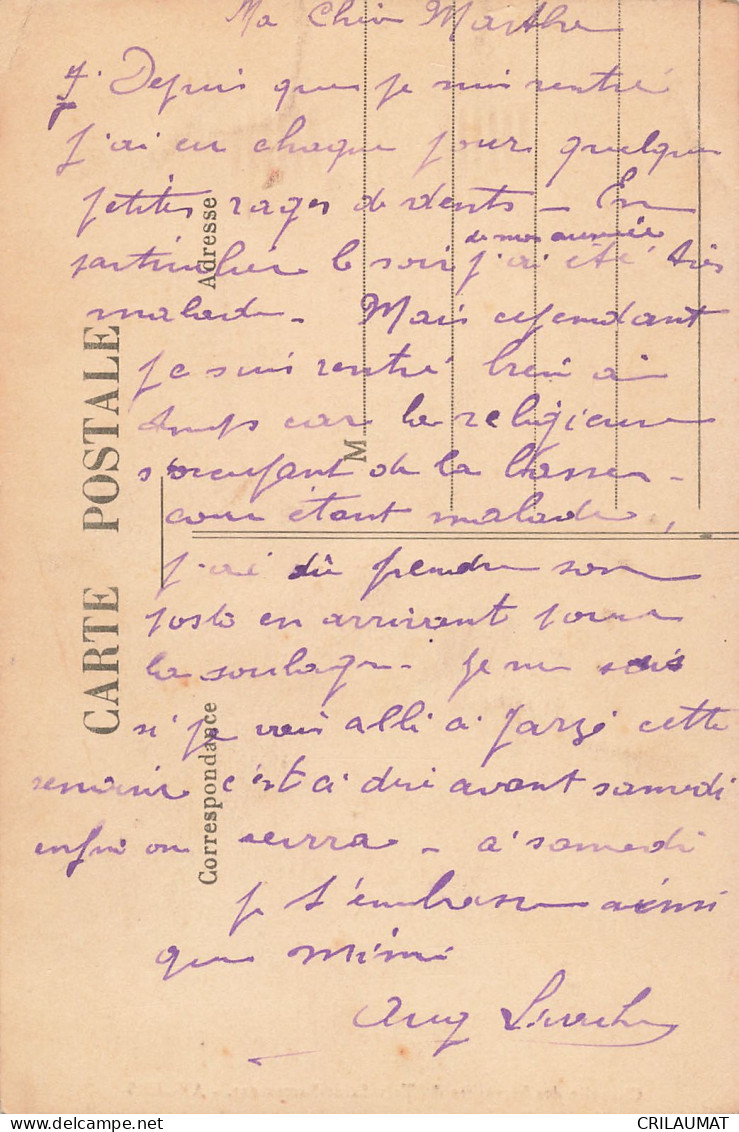 Ma Chèr Marthe
Depuis que je suis rentré
j'ai eu chaque jours quelques
petites rages de dents - En
de mon arrivée
particulier le soir j'ai été très
malade - Mais cependant
je suis rentré bien à
temps car la religieuse
s'occupant de la basse-
cour étant malade,
j'ai dû prendre son
poste en arrivant pour
la soulager. je ne sais
si je vais allé à Jarzé cette
semaine c'est à dire avant samedi
enfin on verra - à samedi
je t'embrasse ainsi
que Mimi
Aug
CARTE POSTALE
Correspondance
Adresse
M
CRILAUMAT